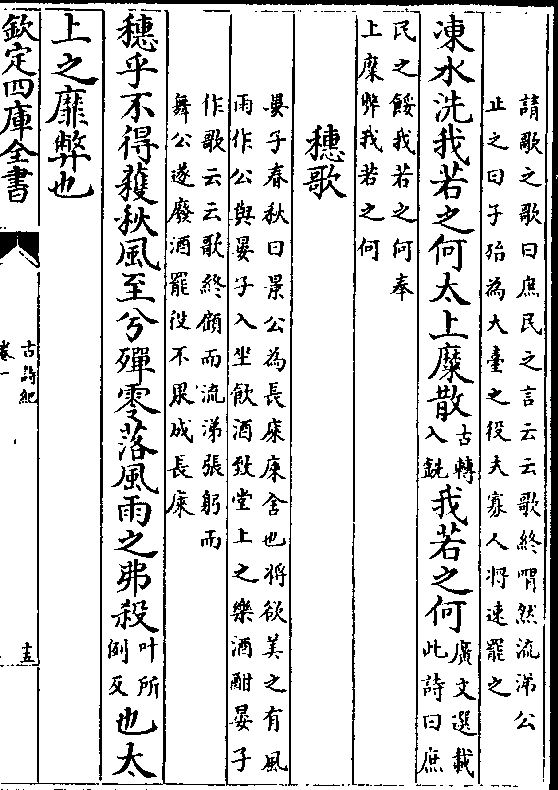 請歌之歌曰庶民之言云云歌終喟然流涕公
止之曰子殆為大臺之役夫寡人將速罷之
凍水洗我若之何太上糜散古轉入銑我若之何廣文選載此詩曰庶
民之餒我若之何奉
上糜弊我若之何
穗歌
晏子春秋曰景公為長庲庲舍也將欲美之有風
雨作公與晏子入坐飲酒致堂上之樂酒酣晏子
作歌云云歌終顧而流涕張躬而
舞公遂廢酒罷役不果成長庲
穗乎不得穫秋風至兮殫零落風雨之弗殺叶所例反也太
上之靡弊也
欽定四庫全書
古詩紀
卷一